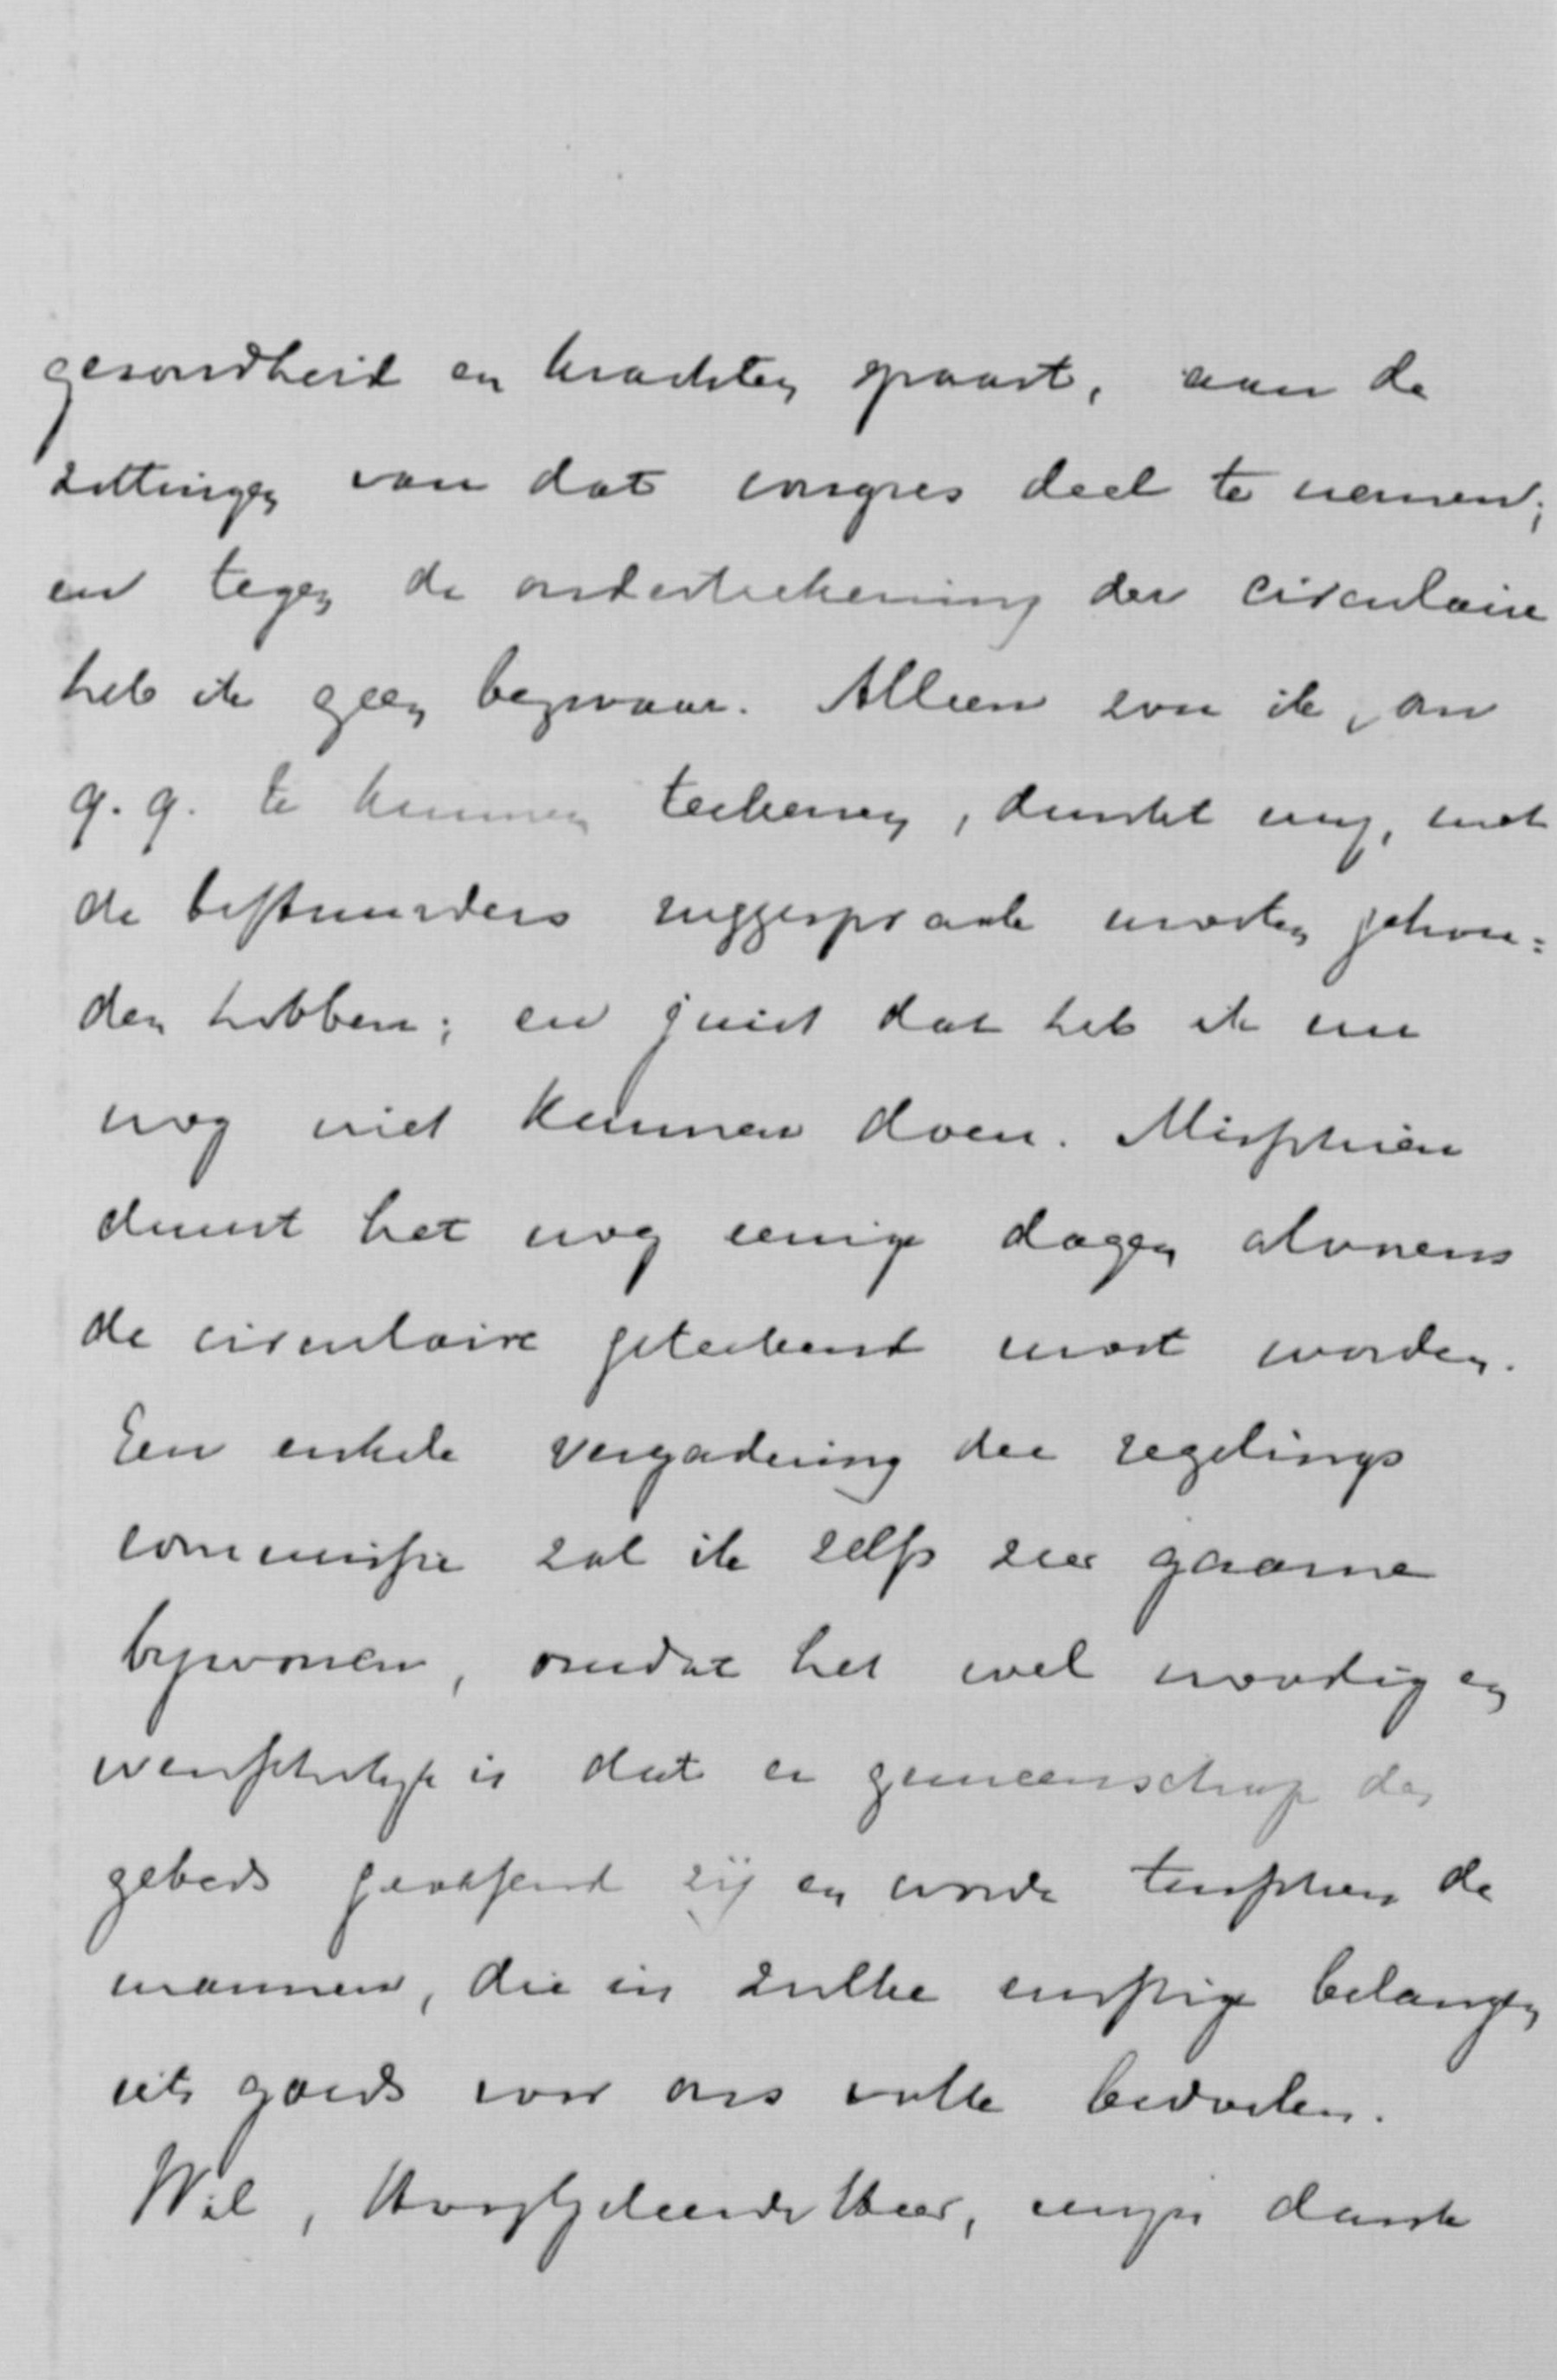 gezondheid en krachten spaart, aan de
zittingen van dat congres deel te nemen;
en tegen de onderteekening der circulaire
heb ik geen bezwaar. Alleen zou ik, om
q.q. te kunnen teekenen, dunkt mij, met
de bestuurders ruggespraak moeten gehou=
den hebben; en juist dat heb ik nu
nog niet kunnen doen. Misschien
duurt het nog eenige dagen alvorens
de circulaire geteekend moet worden.
Een enkele vergadering der regelings
commissie zal ik zelfs zeer gaarne
bijwonen, omdat het wel noodig en
wenschelijk is dat er gemeenschap des
gebeds geoefend zij en worde tusschen de
mannen, die in zulke ernstige belangen
iets goeds voor ons volk bedoelen.
Wil, Hooggeleerde Heer, mijn dank